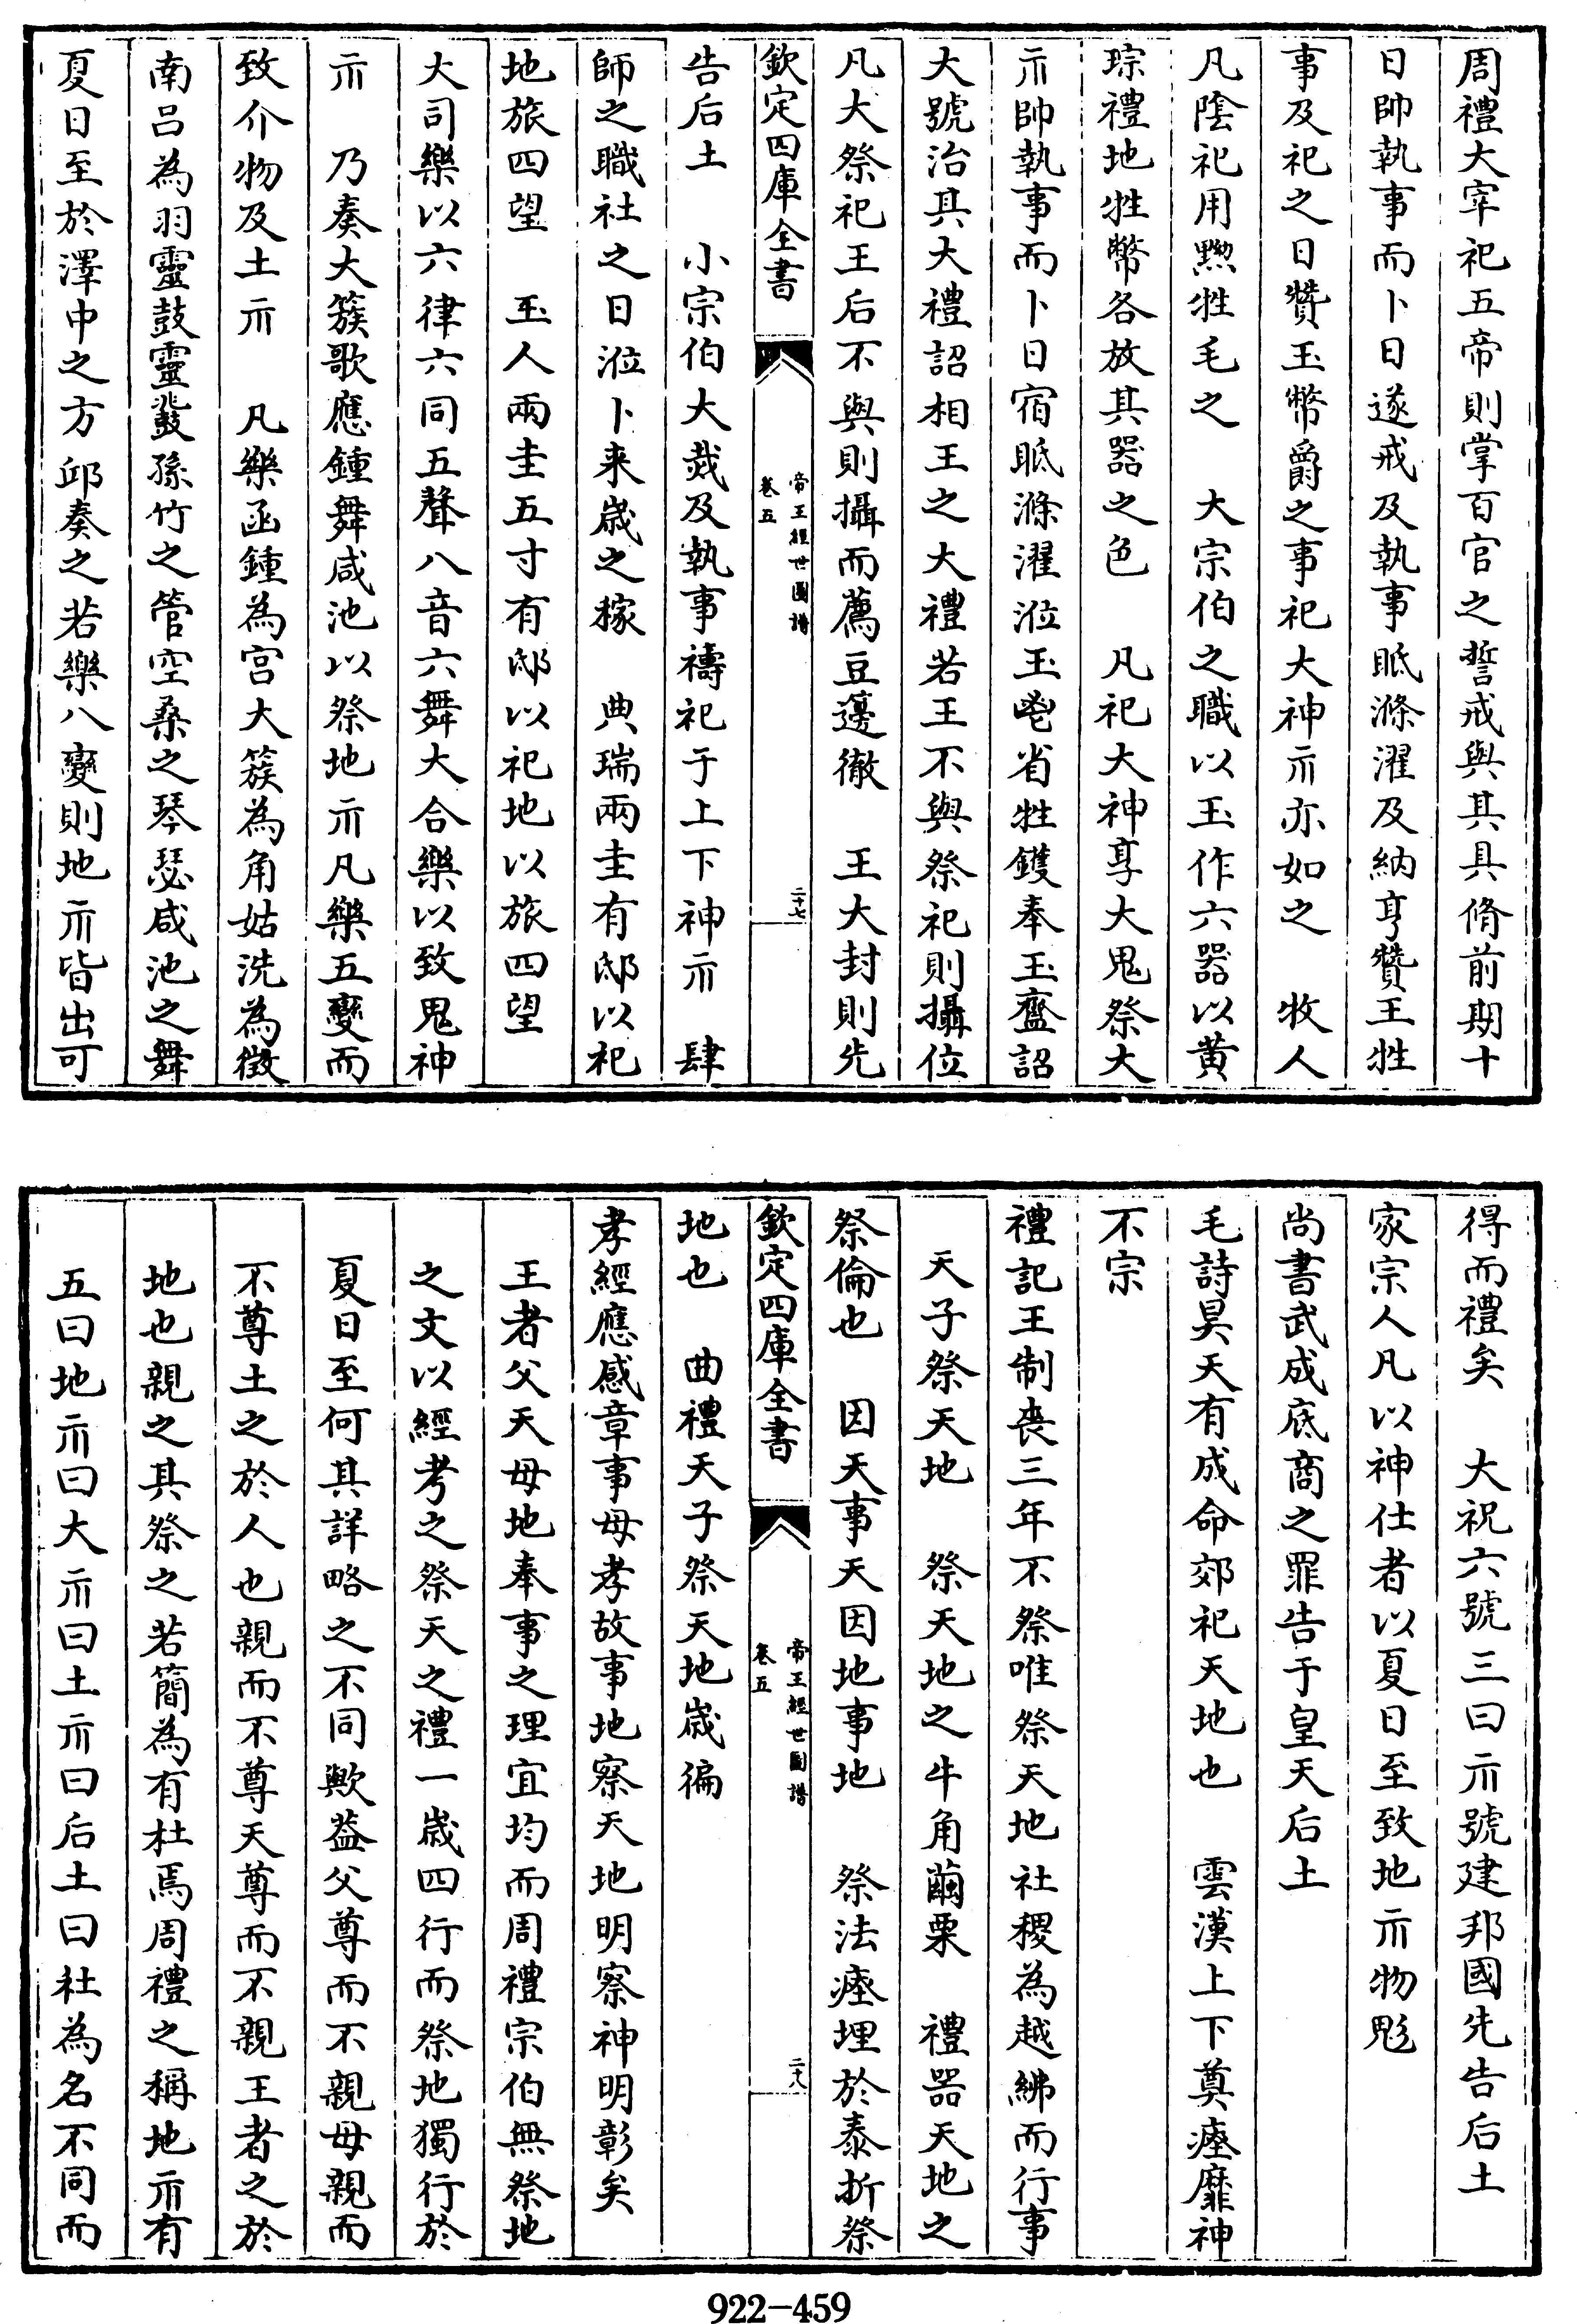 周禮大宰祀五帝則掌百官之誓戒與其具脩前期十
日帥執事而卜日遂戒及執事眡滌濯及納亨贊王牲
事及祀之日贊玉幣爵之事祀大神示亦如之　牧人
凡陰祀用黝牲毛之　大宗伯之職以玉作六器以黄
琮禮地牲幣各放其器之色　凡祀大神享大鬼祭大
示帥執事而卜日宿眡滌濯涖玉鬯省牲鑊奉玉齍詔
大號治其大禮詔相王之大禮若王不與祭祀則攝位
凡大祭祀王后不與則攝而薦豆籩徹　王大封則先
欽定四庫全書
帝王經世圖譜
卷五
二十七
告后土　小宗伯大烖及執事禱祀于上下神示　肆
師之職社之日涖卜来歲之稼　典瑞兩圭有邸以祀
地旅四望　玉人兩圭五寸有邸以祀地以旅四望
大司樂以六律六同五聲八音六舞大合樂以致鬼神
示　乃奏大簇歌應鍾舞咸池以祭地示凡樂五變而
致介物及土示　凡樂函鍾為宫大簇為角姑洗為徵
南吕為羽靈鼓靈鼗孫竹之管空桑之琴瑟咸池之舞
夏日至於澤中之方邱奏之若樂八變則地示皆出可
得而禮矣　大祝六號三曰示號建邦國先告后土
家宗人凡以神仕者以夏日至致地示物鬽
尚書武成底商之罪告于皇天后土
毛詩昊天有成命郊祀天地也　雲漢上下奠瘞靡神
不宗
禮記王制喪三年不祭唯祭天地社稷為越紼而行事
天子祭天地　祭天地之牛角繭栗　禮器天地之
祭倫也　因天事天因地事地　祭法瘞埋於泰折祭
欽定四庫全書
帝王經世圖譜
卷五
二十八
地也　曲禮天子祭天地歲徧
孝經應感章事母孝故事地察天地明察神明彰矣
王者父天母地奉事之理宜均而周禮宗伯無祭地
之文以經考之祭天之禮一歲四行而祭地獨行於
夏日至何其詳略之不同歟葢父尊而不親母親而
不尊土之於人也親而不尊天尊而不親王者之於
地也親之其祭之若簡為有杜焉周禮之稱地示有
五曰地示曰大示曰土示曰后土曰社為名不同而
922-459